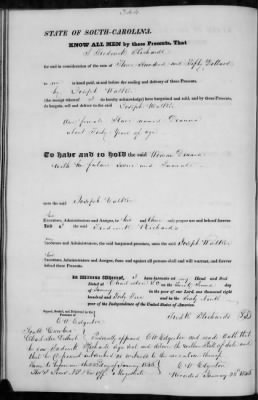 STATE OF SOUTH-CAROLINA.
KNOW ALL MEN by these Presents, That
I Frederick Richards
for and in consideration of the sum of Three Hundred and Fifty Dollars
to me in hand paid, at and before the sealing and delivery of these Presents,
by Joseph Wattle
(the receipt whereof I do hereby acknowledge) have bargained and sold, and by these Presents,
do bargain, sell and deliver to the said Joseph Wattle
One female Slave named Deanna
about Forty Years of age
To have and to hold the said Woman Deanna
with her future Issue and Increase
unto the said Joseph Wattle
his
Executors, Administrators and Assigns, to his and their only proper use and behoof forever
And I the said Frederick Richards
my
Executors and Administrators, the said bargained premises, unto the said Joseph Wattle
his
Executors, Administrators and Assigns, from and against all persons shall and will warrant, and forever
defend by these Presents.
In Witness Whereof, I have hereunto set my Hand and Seal
Dated at Charleston S.C. on the
day of January in the year of our Lord one thousand eight
hundred and Forty Five and in the Sixty Ninth
year of the Independence of the United States of America.
Signed, Sealed and Delivered in the
Presence of
C W Edgerton
Fredk Richards
South Carolina
Charleston District Personally appeared C W Edgerton and made Oath that
he saw Frederick Richards sign seal and deliver the within Bill of Sale and
that he subscribed as witness to the execution thereof
Sworn to before me this day of January 1845
C W Edgerton
Recorded January 1845